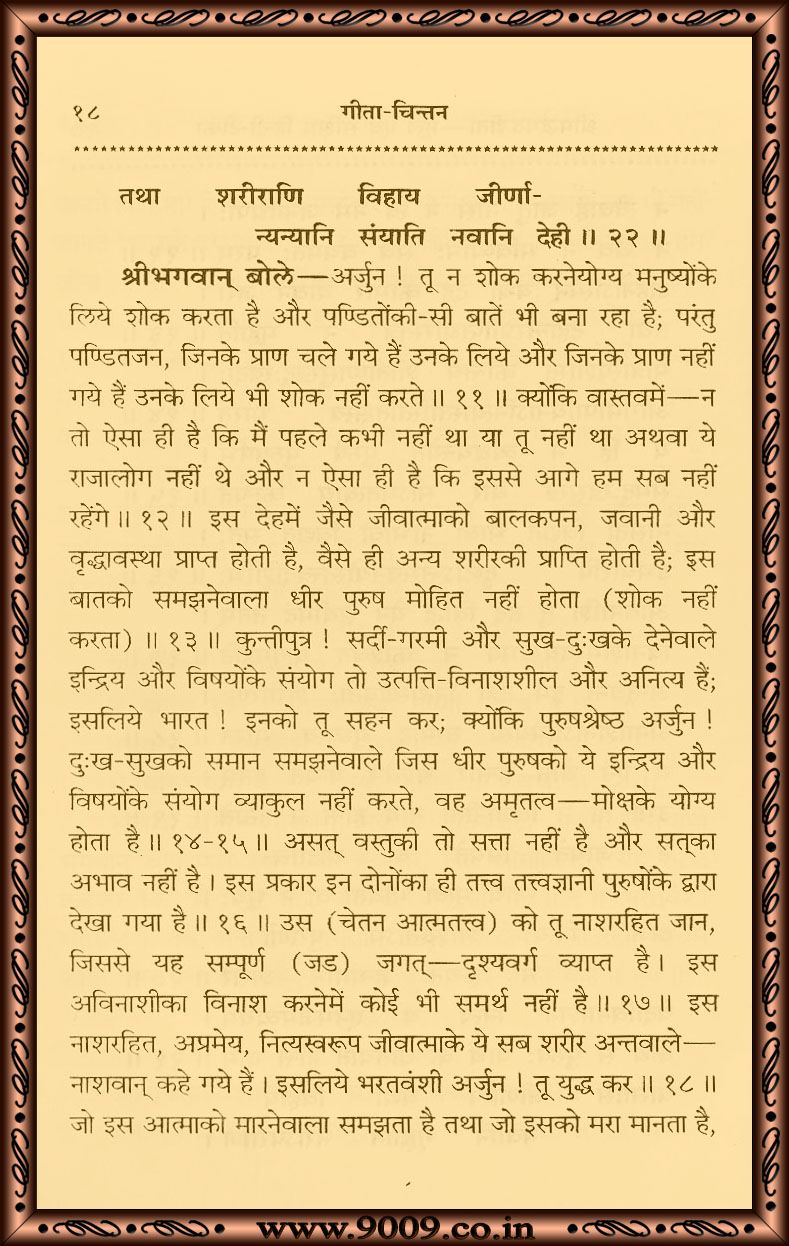 १८ गीता-चिन्तन
तथा शरीराणि विहाय जीर्णा-
न्यन्यानि संयाति नवानि देही॥ २२ ॥
श्रीभगवान् बोले—अर्जुन! तू न शोक करनेयोग्य मनुष्योंके
लिये शोक करता है और पण्डितोंकी-सी बातें भी बना रहा है; परंतु
पण्डितजन, जिनके प्राण चले गये हैं उनके लिये और जिनके प्राण नहीं
गये हैं उनके लिये भी शोक नहीं करते॥ ११ ॥ क्योंकि वास्तवमें—न
तो ऐसा ही है कि मैं पहले कभी नहीं था या तू नहीं था अथवा ये
राजालोग नहीं थे और न ऐसा ही है कि इससे आगे हम सब नहीं
रहेंगे॥ १२ ॥ इस देहमें जैसे जीवात्माको बालकपन, जवानी और
वृद्धावस्था प्राप्त होती है, वैसे ही अन्य शरीरकी प्राप्ति होती है; इस
बातको समझनेवाला धीर पुरुष मोहित नहीं होता (शोक नहीं
करता)॥ १३ ॥ कुन्तीपुत्र! सर्दी-गरमी और सुख-दुःखके देनेवाले
इन्द्रिय और विषयोंके संयोग तो उत्पत्ति-विनाशशील और अनित्य हैं;
इसलिये भारत! इनको तू सहन कर; क्योंकि पुरुषश्रेष्ठ अर्जुन!
दुःख-सुखको समान समझनेवाले जिस धीर पुरुषको ये इन्द्रिय और
विषयोंके संयोग व्याकुल नहीं करते, वह अमृतत्व—मोक्षके योग्य
होता है॥ १४-१५ ॥ असत् वस्तुकी तो सत्ता नहीं है और सत्‌का
अभाव नहीं है। इस प्रकार इन दोनोंका ही तत्त्व तत्त्वज्ञानी पुरुषोंके द्वारा
देखा गया है॥ १६ ॥ उस (चेतन आत्मतत्त्व) को तू नाशरहित जान,
जिससे यह सम्पूर्ण (जड) जगत्—दृश्यवर्ग व्याप्त है। इस
अविनाशीका विनाश करनेमें कोई भी समर्थ नहीं है॥ १७ ॥ इस
नाशरहित, अप्रमेय, नित्यस्वरूप जीवात्माके ये सब शरीर अन्तवाले—
नाशवान् कहे गये हैं। इसलिये भरतवंशी अर्जुन! तू युद्ध कर॥ १८ ॥
जो इस आत्माको मारनेवाला समझता है तथा जो इसको मरा मानता है,
www.9009.co.in